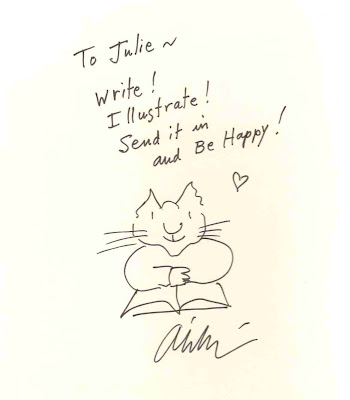 To Julie ~
Write!
Illustrate!
Send it in
and Be Happy!